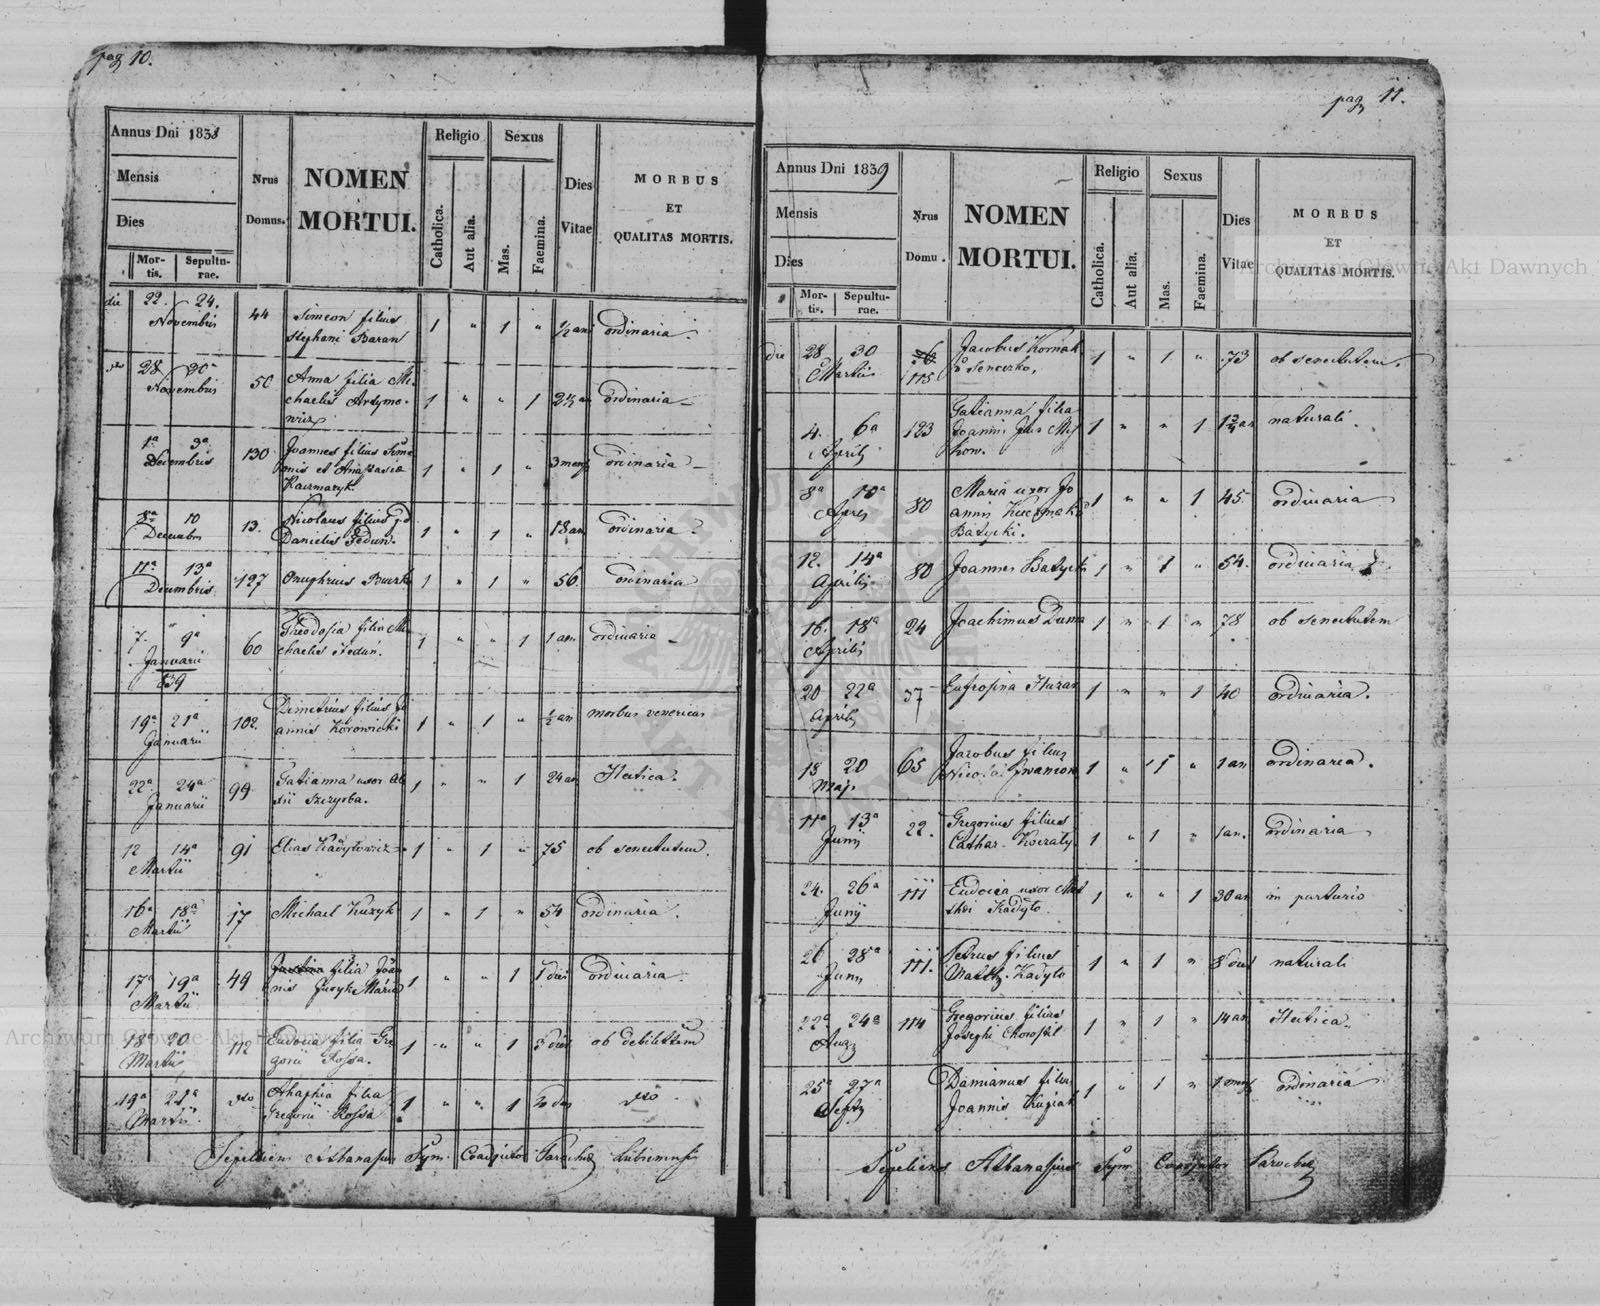 pag 10.
Annus Dni 1838
Mensis
Dies
Mortis. Sepulturae.
Nrus Domus.
NOMEN MORTUI.
Religio
Catholica. Aut alia.
Sexus
Mas. Faemina.
Dies Vitae
MORBUS ET QUALITAS MORTIS.
die 22. 24. Novembris 44 Simeon filius Stephani Baran 1 " 1 " 1/2 ani ordinaria
28 30a Novembris 50 Anna filia Michaelis Artymowicz 1 " " 1 2 1/2 an ordinaria
1a 3a Decembris 130 Joannes filius Simeonis et Anastasiae Kaczmaryk 1 " 1 " 3 mens ordinaria
8a 10 Decembr 13. Nicolaus filius Danielis Fedun. 1 " 1 " 18 an ordinaria
11a 13a Decembris 127 Onuphrius Burk 1 " 1 " 56. ordinaria
7. 9a Januarii 839 60 Theodosia filia Michaelis Fedun. 1 " " 1 1 an ordinaria
19a 21a Januarii 102. Demetrius filius Joannis Korowicki 1 " 1 " 1/2 an morbus venericus
22a 24a Januarii 99 Tatianna uxor Alexii Szczyrba. 1 " " 1 24 an Hectica.
12 14a Martii 91 Elias Kadyłowicz 1 " 1 " 75 ob senectutem.
16a 18a Martii 17 Michael Kuzyk 1 " 1 " 54 ordinaria.
17a 19a Martii 49 filia Joannis Maria 1 " " 1 1 dies ordinaria
18 20 Martii 112 Eudocia filia Gregorii Rossa. 1 " " 1 3 dies ob debilitatem
19a 21a Martii. dto Ahaphia filia Gregorii Rossa 1 " " 1 dto
Sepeliens Athanasius Sym Coadjutor Parochiae
pag 11.
Annus Dni 1839
Mensis
Dies
Mortis. Sepulturae.
Nrus Domu.
NOMEN MORTUI.
Religio
Catholica. Aut alia.
Sexus
Mas. Faemina.
Dies Vitae
MORBUS ET QUALITAS MORTIS.
die 28 30 Martii 115 Jacobus Korniak Senczko, 1 " 1 " 73 ob senectutem.
4. 6a Aprilis 123 Tatianna filia Joannis 1 " " 1 naturali.
8a 10a Apris 80 Maria uxor Joannis Batycki. 1 " " 1 45 ordinaria
12. 14a Aprilis. 80 Joannes Batycki 1 " 1 " 54. ordinaria
16. 18a Aprilis 24 Joachimus Duma 1 " 1 " 78 ob senectutem
20 22a Aprilis 37 Eufrosina Huzar 1 " " 1 40 ordinaria.
18 20 Maji 65 Jacobus filius Nicolai Iwanion 1 " 1 " 1 an ordinaria.
11a 13a Junij 22. Gregorius filius Cathar. Koczaly 1 " 1 " 1 an. ordinaria
24. 26a Junij 111 Eudocia uxor Matthei Kadyło 1 " " 1 30 an in parturio
26 28a Junij 111. Petrus filius Matth. Kadyło 1 " 1 " 8 dies naturali
22a 24a Aug 114 Gregorius filius Josephi Choroszil 1 " 1 " 14 an Hectica.
25a 27a Septb Damianus filius Joannis Kuziak 1 " 1 " ordinaria
Sepeliens Athanasius Sym Coadjutor Parochiae
Archiwum Główne Akt Dawnych
Archiwum Główne Akt